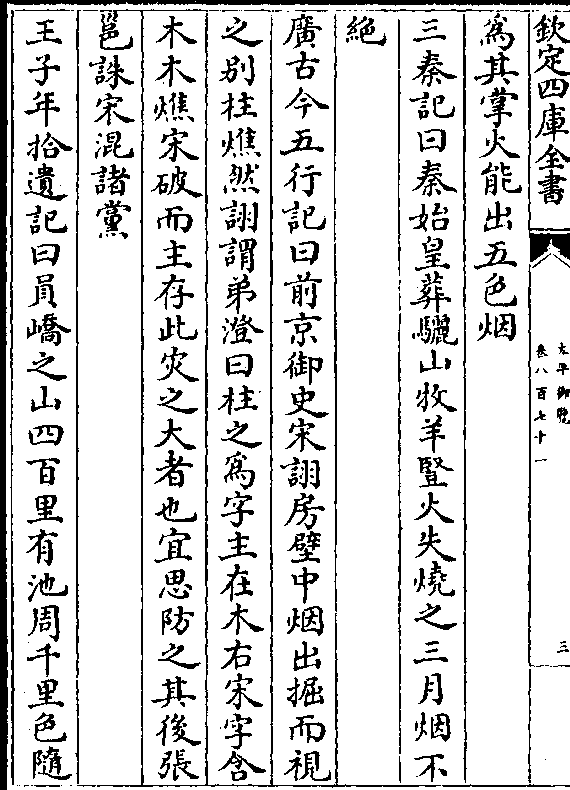 欽定四庫全書
太平御覽
卷八百七十一
三
爲其掌火能出五色烟
三秦記曰秦始皇葬驪山牧羊豎火失燒之三月烟不
絶
廣古今五行記曰前京御史宋詡房壁中烟出掘而視
之别柱燋然詡謂弟澄曰柱之爲字主在木右宋字含
木木燋宋破而主存此灾之大者也宜思防之其後張
邕誅宋混諸黨
王子年拾遺記曰員嶠之山四百里有池周千里色隨